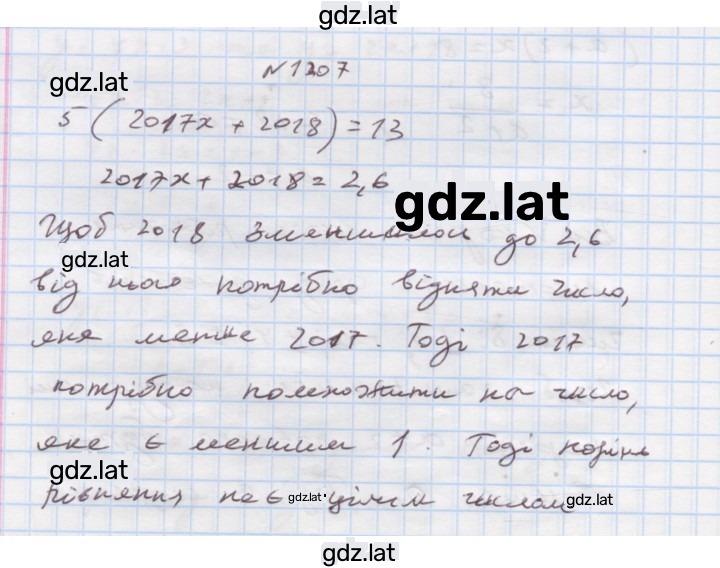 gdz.lat
N 1207
gdz.lat
5 ( 2017x + 2018 ) = 13
2017x + 2018 = 2,6
gdz.lat
Щоб 2018 зменшилось до 2,6
gdz.lat
від нього потрібно відняти число,
яке менше 2017. Тоді 2017
потрібно помножити на число,
яке є меншим 1. Тоді корінь
gdz.lat
рівняння не є цілим числом
gdz.lat gdz.lat
gdz.lat